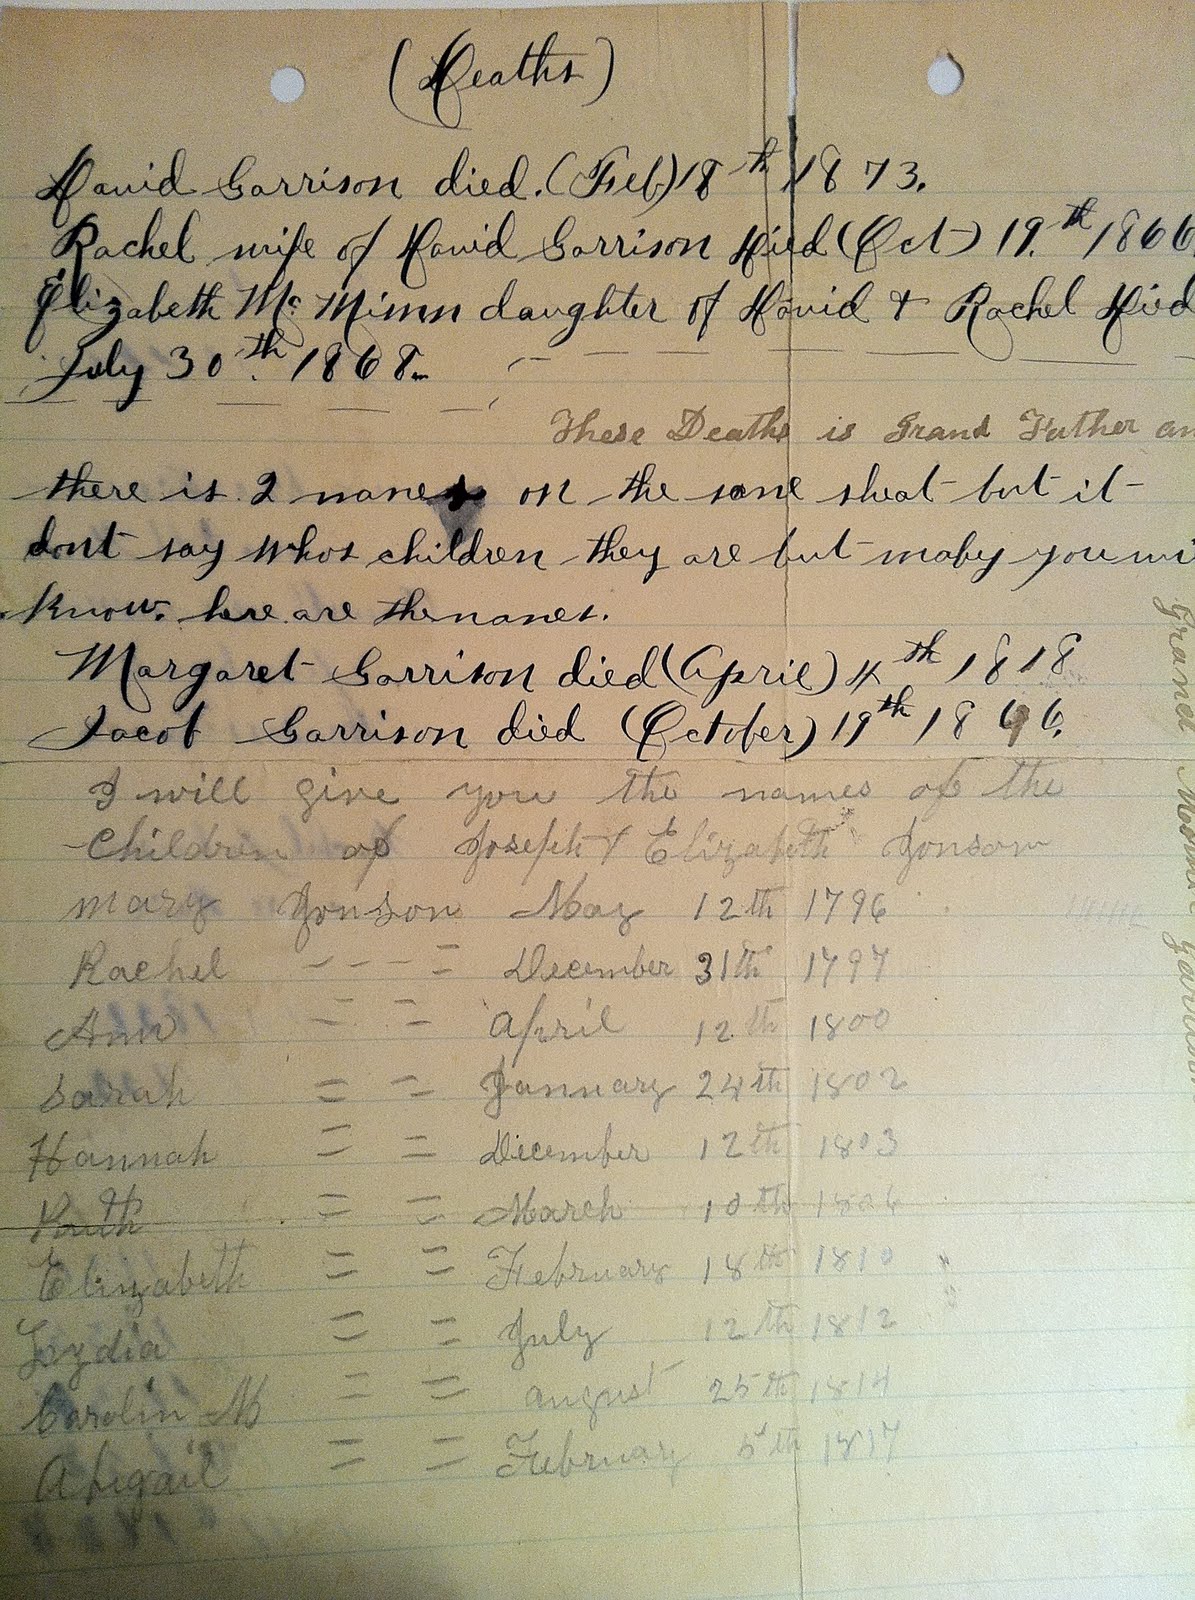 (Deaths)
David Garrison died. (Feb) 18th 1873.
Rachel wife of David Garrison Died (Oct) 19.th 1866.
Elizabeth Mc Minn daughter of David & Rachel Died
July 30th 1868.
These Deaths is Grand Father an
there is 2 names on the same sheat but it
dont say whos children they are but maby you wi
know. here are the names.
Margaret Garrison died (April) 4th 1818
Jacob Garrison died (October) 19th 1846.
I will give you the names of the
Children of Joseph & Elizabeth Jonson
Mary Jonson May 12th 1796
Rachel - - - = December 31th 1797
Ann = = April 12th 1800
Sarah = = January 24th 1802
Hannah = = December 12th 1803
Ruth = = March 10th 1806
Elizabeth = = February 18th 1810
Lydia = = July 12th 1812
Carolin M = = august 25th 1814
Abigail = = February 5th 1817
Grand Mother Garrison